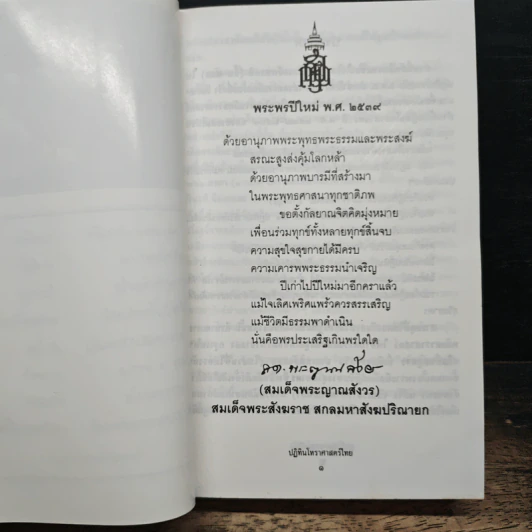 พระพรปีใหม่ พ.ศ. ๒๕๓๙
ด้วยอานุภาพพระพุทธพระธรรมและพระสงฆ์
สรณะสูงส่งคุ้มโลกหล้า
ด้วยอานุภาพบารมีที่สร้างมา
ในพระพุทธศาสนาทุกชาติภพ
ขอตั้งกัลยาณจิตคิดมุ่งหมาย
เพื่อนร่วมทุกข์ทั้งหลายทุกข์สิ้นจบ
ความสุขใจสุขกายได้มีครบ
ความเคารพพระธรรมนำเจริญ
ปีเก่าไปปีใหม่มาอีกคราแล้ว
แม้ใจเลิศเพริศแพร้วควรสรรเสริญ
แม้ชีวิตมีธรรมพาดำเนิน
นั่นคือพรประเสริฐเกินพรใดใด
(สมเด็จพระญาณสังวร)
สมเด็จพระสังฆราช สกลมหาสังฆปริณายก
ปฏิทินโหราศาสตร์ไทย
๑